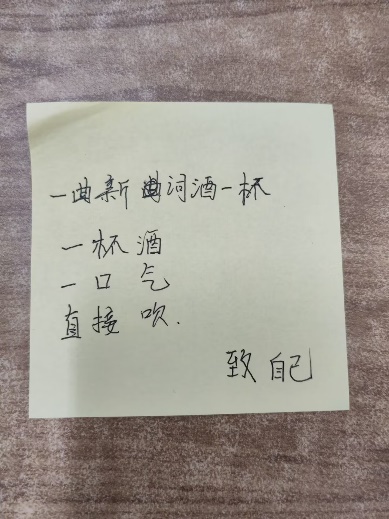 一曲新曲词酒一杯
一杯酒
一口气
直接吹.
致自己